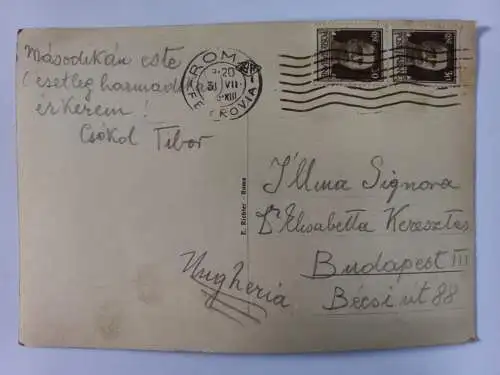 Másodikán este
(esetleg harmadikán)
érkezem!
Csókol Tibor
ROMA
FERROVIA
31 VII
XIII
E. Richter - Roma
I'llma Signora
D. Elisabetta Keresztes
Budapest III
Bécsi út 88
Ungheria